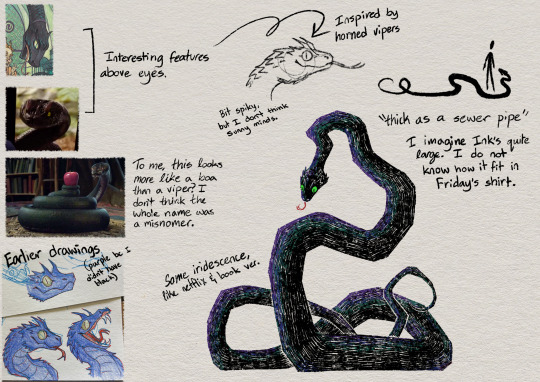 Interesting features
above eyes.
Inspired by
horned vipers
Bit spiky,
but I don't think
sunny minds.
"thick as a sewer pipe"
I imagine Ink's quite
large. I do not
know how it fit in
Friday's shirt.
To me, this looks
more like a boa
than a viper? I
don't think the
whole name was
a misnomer.
Earlier drawings
(purple bc I
didn't have
black)
Some iridescence,
like netflix & book ver.